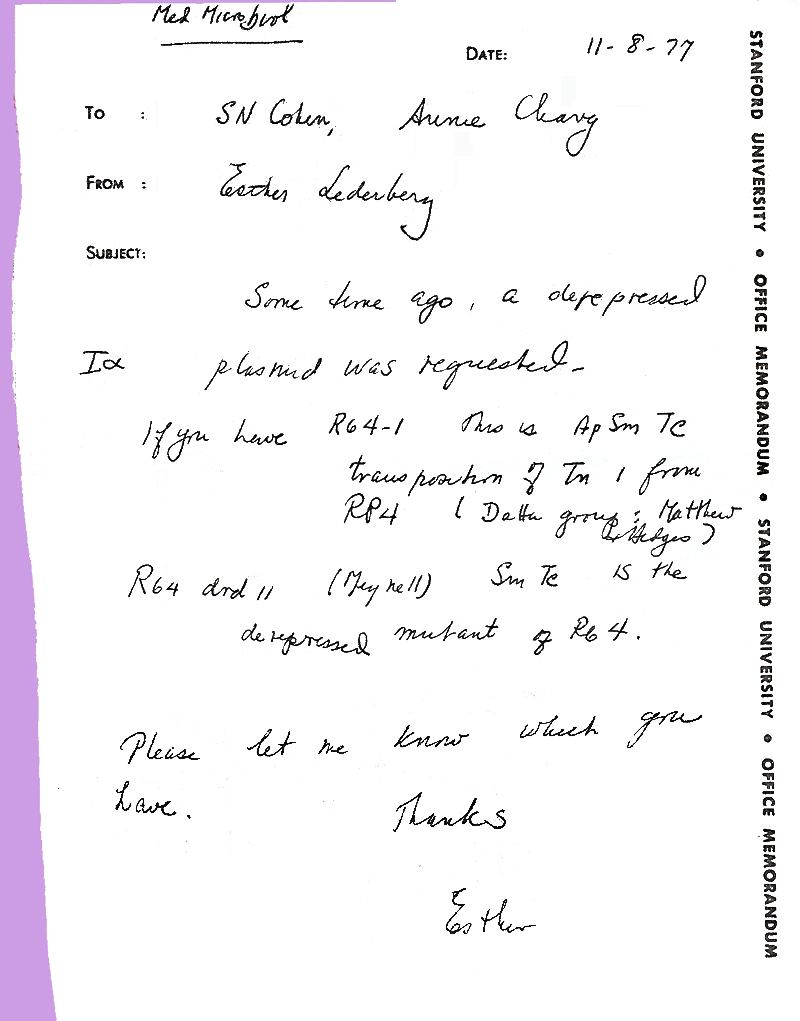 Med Microbiol
DATE: 11-8-77
TO : SN Cohen, Annie Chang
FROM : Esther Lederberg
SUBJECT:
Some time ago, a derepressed
Iα plasmid was requested-
If you have R64-1 This is Ap Sm Tc
transposition of Tn 1 from
RP4 (Datta group: Matthew
& Hedges)
R64 drd 11 (Meynell) Sm Tc is the
derepressed mutant of R64.
Please let me know which you
have. Thanks
Esther
STANFORD UNIVERSITY • OFFICE MEMORANDUM • STANFORD UNIVERSITY • OFFICE MEMORANDUM